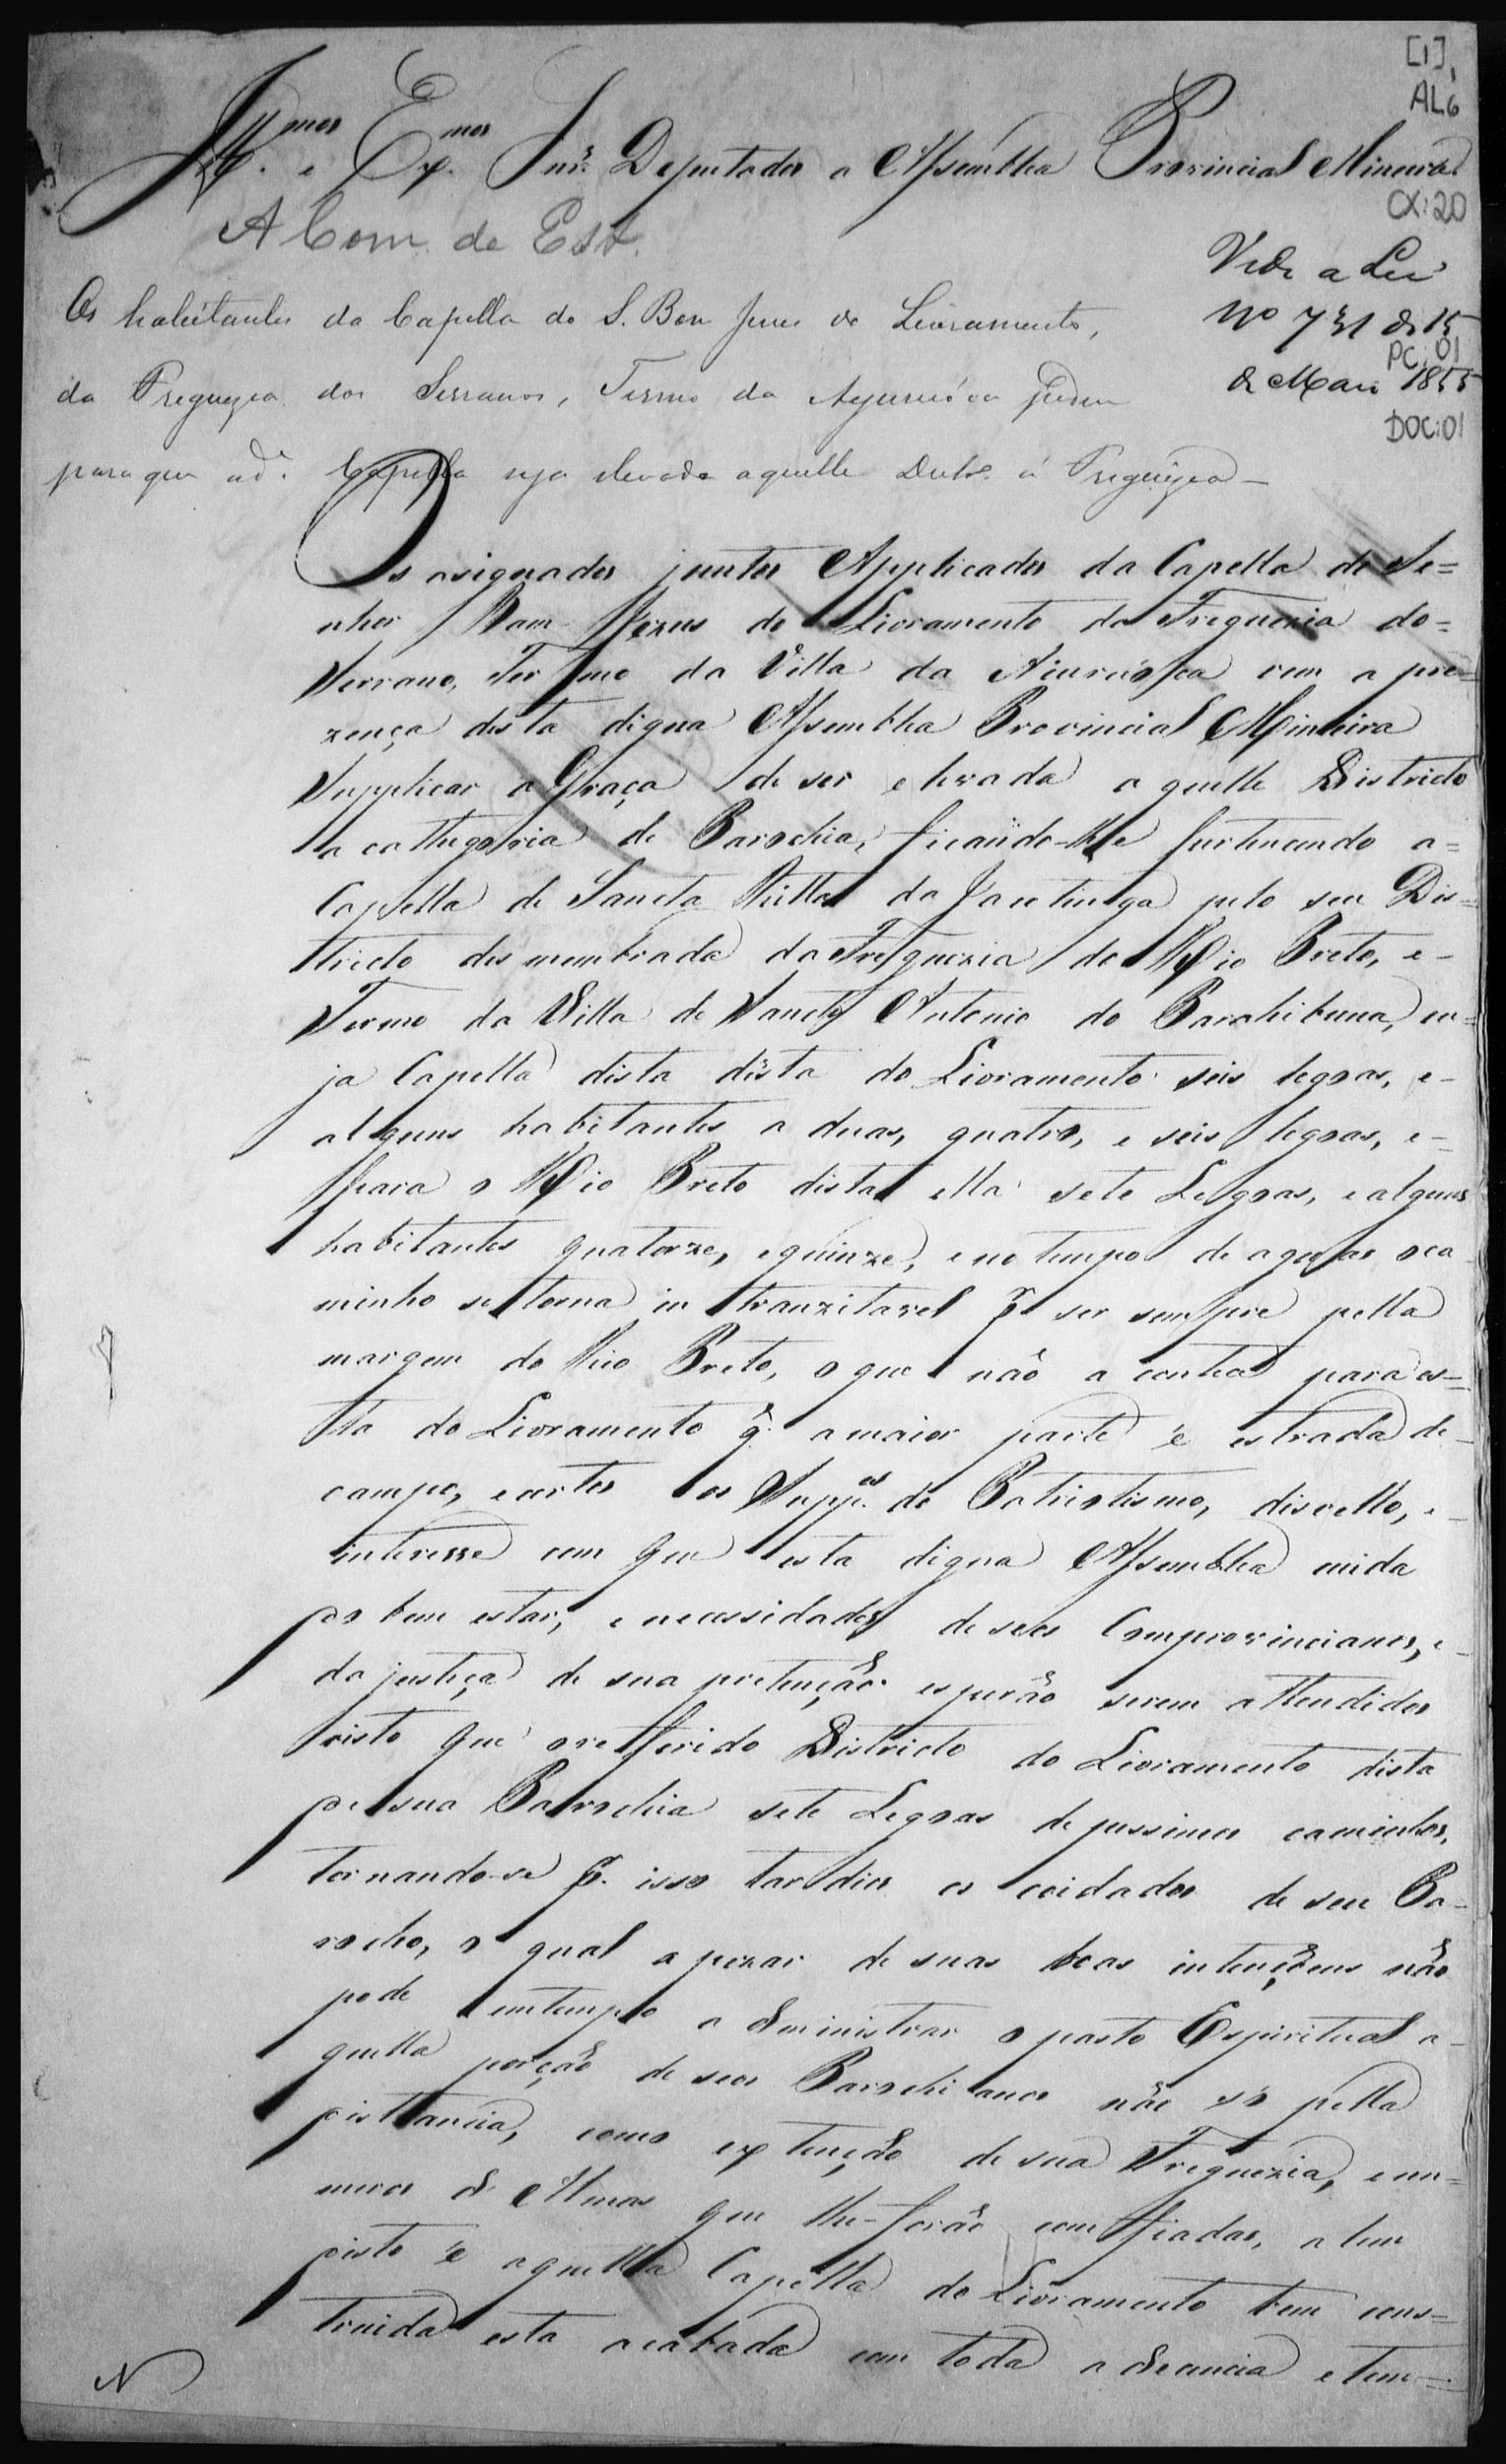 [1],
AL6
Ill.mos e Ex.mos Snr.s Deputados a Assemblea Provincial Mineira
CX:20
A Com. de Est.
Vide a Lei
Nº 731 de 15
PC:01
de Maio 1855
DOC:01
Os habitantes da Capella do S. Bom Jesus do Livramento,
da Freguezia dos Serranos, Termo da Ayuruóca pedem
para que a d.ª Capella seja elevada aquelle Distr.º á Freguezia —
Os asignados juntos Applicados da Capella do Se=
nhor Bom Jezus do Livramento da Freguezia do=
Serrano, Termo da Villa da Aiuruóca vem a pre=
zença desta digna Assemblea Provincial Mineira
Supplicar a Graça de ser elevada aquelle Districto
a cathegoria de Parochia, ficando-lhe pertencendo a=
Capella de Sancta Ritta da Jacutinga pelo seu Dis=
tricto desmembrada da Freguezia do Rio Preto, e-
Termo da Villa de Sancto Antonio do Parahibuna, cu=
ja Capella dista dista do Livramento seis legoas, e-
alguns habitantes a duas, quatro, e seis legoas, e-
para o Rio Preto dista ella sete Legoas, e alguns
habitantes quatorze, e quinze, e no tempo de agoas o ca
minho se torna intranzitavel p.r ser sempre pella
margem do Rio Preto, o que não acontece para es=
ta do Livramento q.' a maior parte é estrada de-
campo, e certos os Supp.es do Patriotismo, disvello, e-
interesse com que esta digna Assemblea cuida
do bem estar, e necessidades de seos Comprovincianos, e-
da justiça de sua pretenção esperão serem attendidos
visto que o referido Districto do Livramento dista
de sua Parochia sete Legoas de pessimos caminhos,
tornando-se p.r isso tardios os coidados de seu Pa-
rocho, o qual apezar de suas boas intençoens não
pode emtempo administrar o pasto Espiritual a-
quella porção de seos Parochianos não só pella
distancia, como extenção de sua Freguezia, e nu=
meros de Almas que lhe forão comfiadas, alem
disto é aquella Capella do Livramento bem cons=
truida esta acabada com toda a decencia e tem=